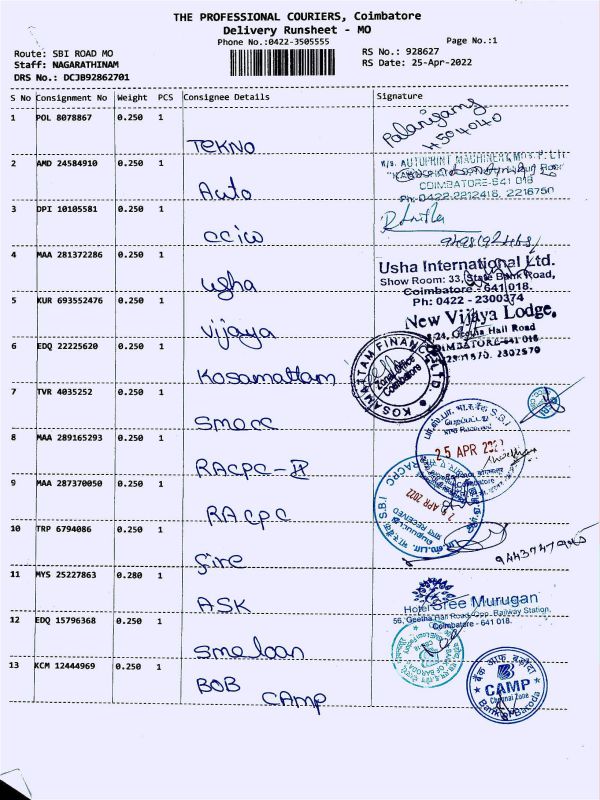 THE PROFESSIONAL COURIERS, Coimbatore
Delivery Runsheet - MO
Phone No.:0422-3505555
Page No.:1
Route: SBI ROAD MO
RS No.: 928627
Staff: NAGARATHINAM
RS Date: 25-Apr-2022
DRS No.: DCJB92862701
S No Consignment No Weight PCS Consignee Details Signature
1 POL 8078867 0.250 1
TEKNO
2 AMD 24584910 0.250 1
M/s. AUTOPRINT MACHINERY
COIMBATORE-641 018
Ph: 0422-2212416, 2216750
Auto
3 DPI 10105581 0.250 1
CCIW
4 MAA 281372286 0.250 1
Usha International Ltd.
Show Room: 33, State Bank Road,
Coimbatore - 641 018.
Ph: 0422 - 2300374
Usha
5 KUR 693552476 0.250 1
New Vijaya Lodge,
Geetha Hall Road
COIMBATORE-641 018
2302579
Vijaya
6 EDQ 22225620 0.250 1
KOSAMATTAM FINANCE LTD.
Zonal Office
Coimbatore
Kosamattam
7 TVR 4035252 0.250 1
SMECC
8 MAA 289165293 0.250 1
S.B.I
25 APR 202
RACPC-II
9 MAA 287370050 0.250 1
S.B.I
RACPC
APR 2022
RECEIVED
RACPC
10 TRP 6794086 0.250 1
fire
11 MYS 25227863 0.280 1
Hotel Sree Murugan
56, Geetha Hall Road, Opp. Railway Station,
Coimbatore - 641 018.
ASK
12 EDQ 15796368 0.250 1
OF BARODA
sme loan
13 KCM 12444969 0.250 1
बैंक ऑफ़ बड़ौदा
CAMP
Chennai Zone
Bank of Baroda
BOB
CAMP